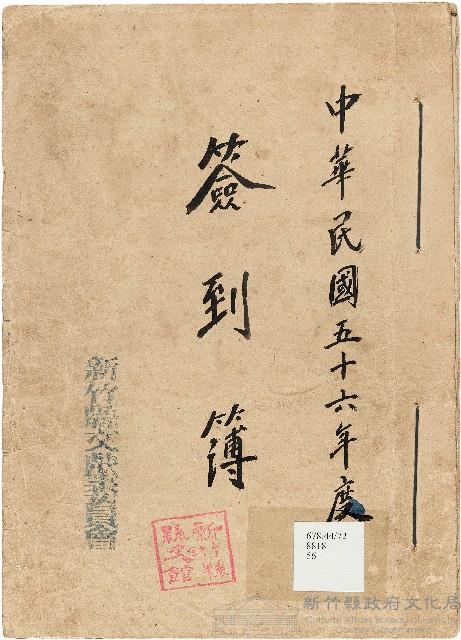 中華民國五十六年度
簽到簿
新竹縣文獻委員會
678.44/72
8818
56
新竹縣政府文化局
Cultural Affairs Bureau of Hsinchu
County Government